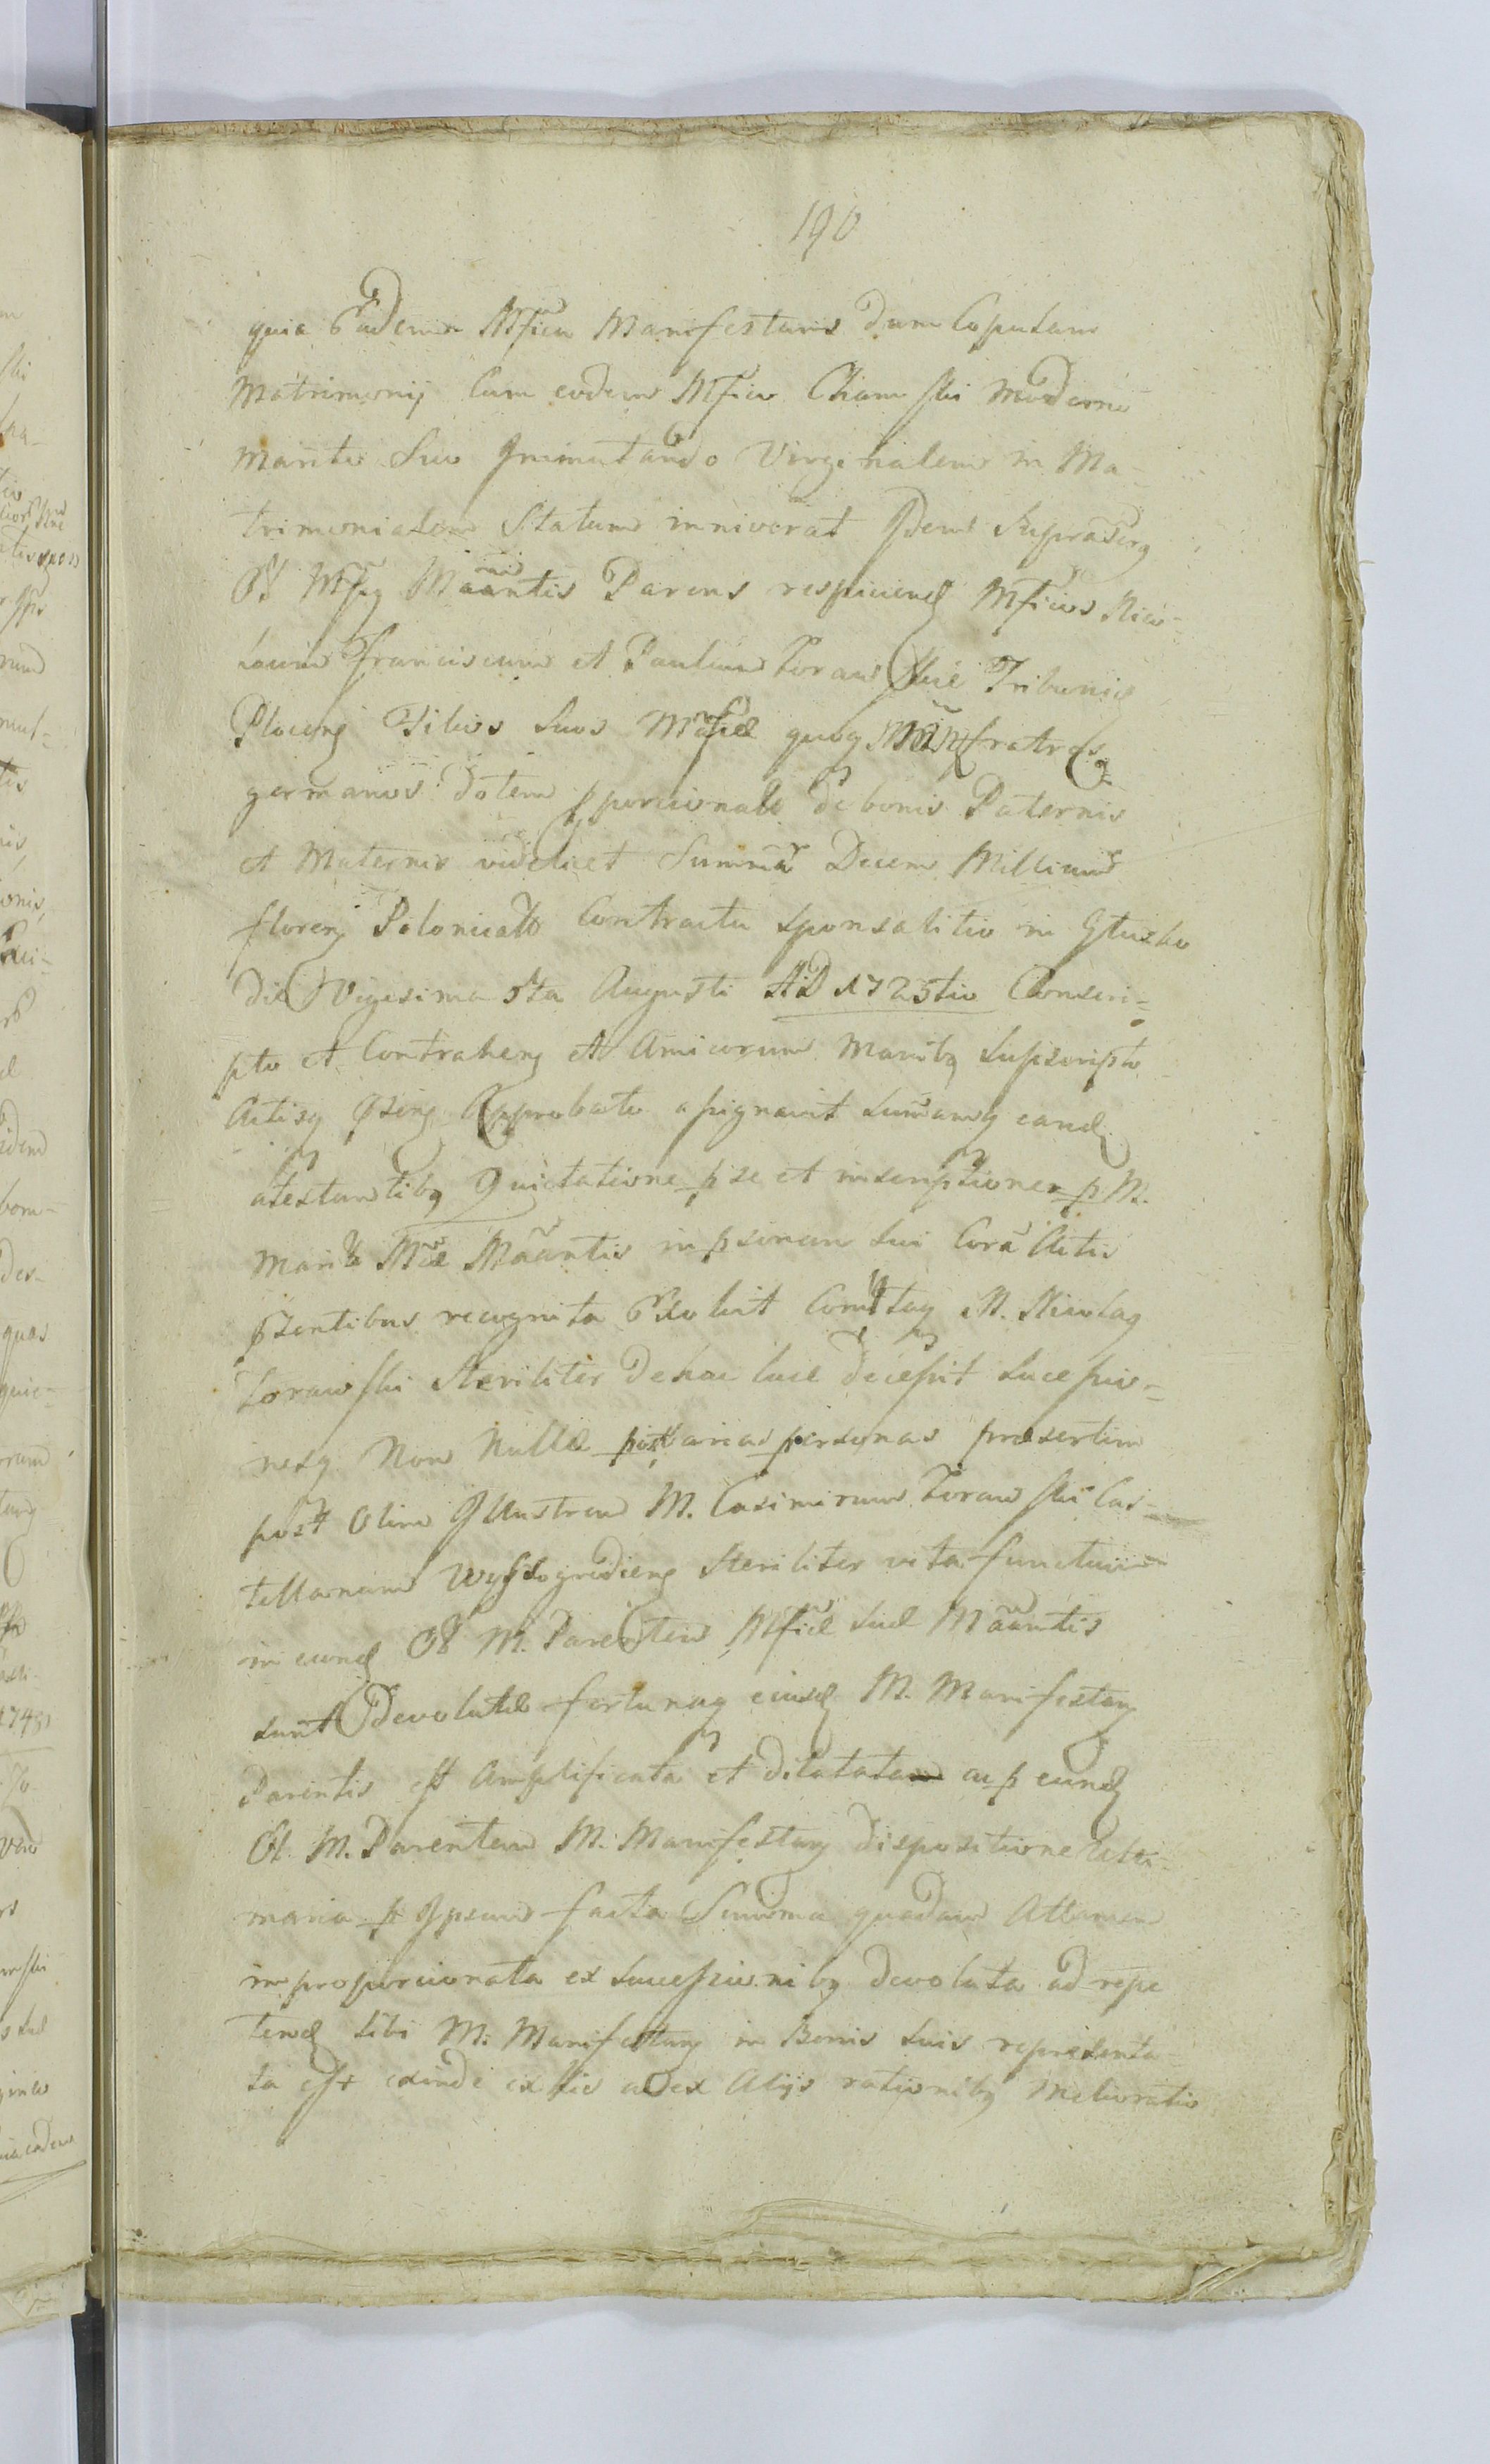 190
quia Eadem Mfica Manifestans dum Copulam
Matrimonij Cum eodem Mfico Chamski Moderno
marito Suo Immutando Virginalem in Ma-
trimonialem Statum inniverat Idem Supradictg
Ol Mfcg Maantis Parens respiciend Mficos Nico-
laum Franciscum et Paulum Zorawskie Tribunid
Plocens Filios Suos Mficae quoq Maantis fratres
germanos dotem pporcionale de bonis Paternis
et Maternis videlicet Summa Decem Millium
floreng Polonicall Contractu sponsalitio in Głusko
die Vigesima 5ta Augusti AD 1725tio Conscri-
pto et Contraheng et Amicorum Manibq Supscripto
Actisq pseng Approbato assignavit Sumamq eand
atestantibq Quietatione p se et inscriptione p M.
Marito Mcae Maantis in psonam sui Cora Actis
psentibus recognita Exoluit M. Nicolaq
Zorawski Steriliter de hac luce decessit Sucessio-
nesq Non nullae post varias personas praesertim
post olim Illustrem M. Casimirum Zorawski Cas-
tellanum Wyszogrodieng Steriliter vita functum
in eund Ol M. Parentem Mficae suae Maantis
sunt Devolutae fortunaq eiusd M. Manifestang
Parentis est Amplificata et dilatata ac p eund
Ol. M. Parentem M. Manifestang dispositione Ulti-
maria p Ipsum facta Summa quadam Attamen
improporcionata ex sucessionibq devoluta ad repe
tend sibi M. Manifestang in Bonis suis repraesenta-
ta est exinde ex his ac ex Alijs rationibq Melioratio